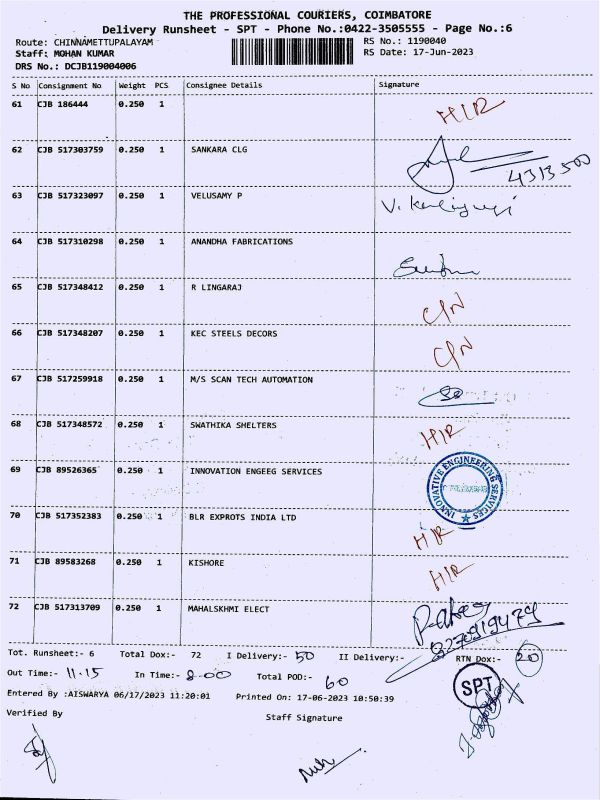 THE PROFESSIONAL COURIERS, COIMBATORE
Delivery Runsheet - SPT - Phone No.:0422-3505555 - Page No.:6
Route: CHINNAMETTUPALAYAM RS No.: 1190040
Staff: MOHAN KUMAR RS Date: 17-Jun-2023
DRS No.: DCJB119004006
S No Consignment No Weight PCS Consignee Details Signature
61 CJB 186444 0.250 1 HIR
62 CJB 517303759 0.250 1 SANKARA CLG
4313500
63 CJB 517323097 0.250 1 VELUSAMY P
64 CJB 517310298 0.250 1 ANANDHA FABRICATIONS
65 CJB 517348412 0.250 1 R LINGARAJ C/N
66 CJB 517348207 0.250 1 KEC STEELS DECORS C/N
67 CJB 517259918 0.250 1 M/S SCAN TECH AUTOMATION
68 CJB 517348572 0.250 1 SWATHIKA SHELTERS H/R
69 CJB 89526365 0.250 1 INNOVATION ENGEEG SERVICES INNOVATIVE ENGINEERING SERVICES
70 CJB 517352383 0.250 1 BLR EXPROTS INDIA LTD H/R
71 CJB 89583268 0.250 1 KISHORE H/R
72 CJB 517313709 0.250 1 MAHALSKHMI ELECT
Tot. Runsheet:- 6 Total Dox:- 72 I Delivery:- 50 II Delivery:- RTN Dox:- 20
Out Time:- 11.15 In Time:- 8.00 Total POD:- 60
SPT
Entered By :AISWARYA 06/17/2023 11:20:01 Printed On: 17-06-2023 10:50:39
Verified By Staff Signature